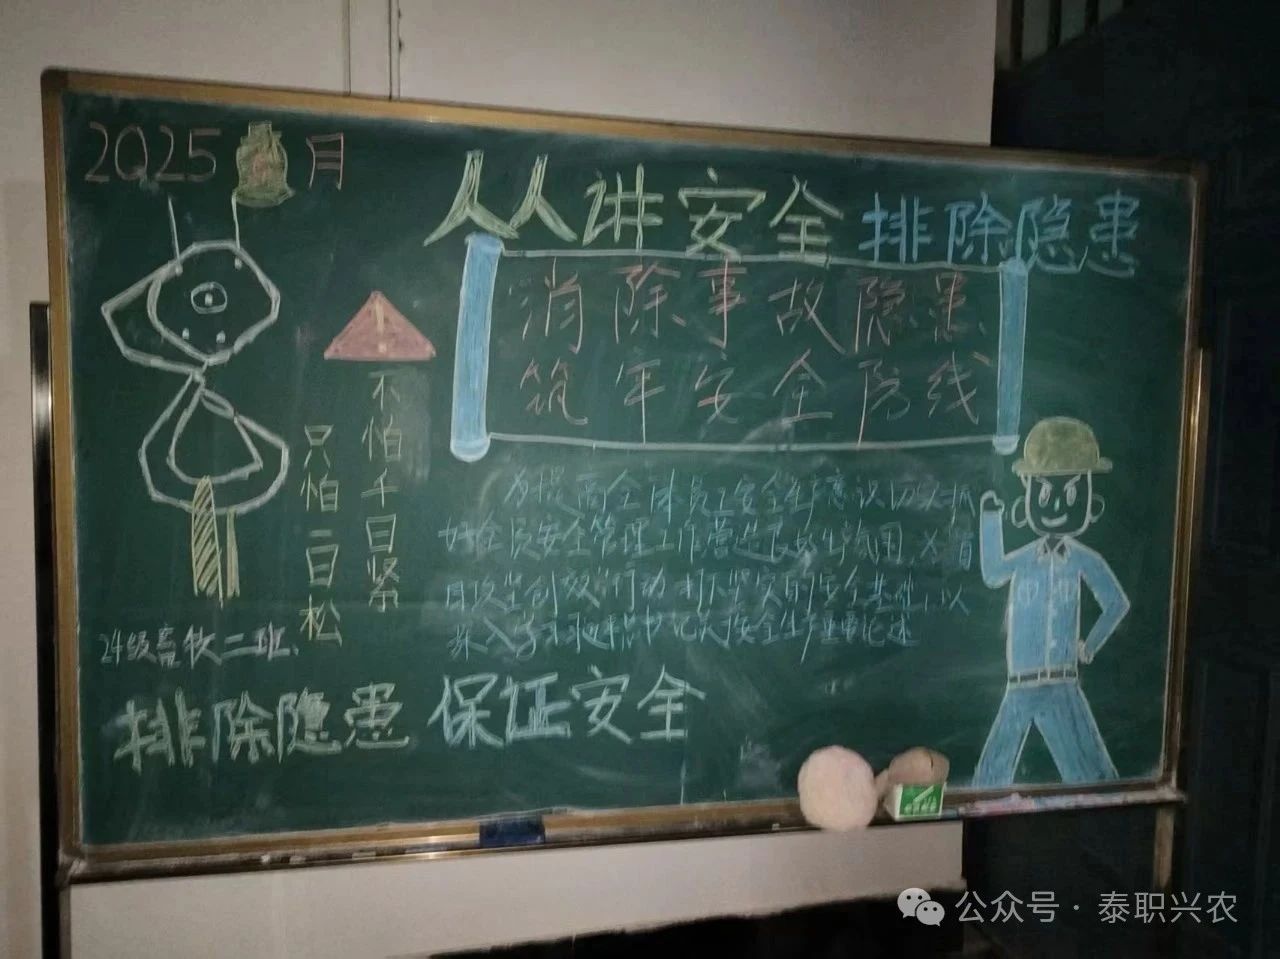 2025 月
人人讲安全 排除隐患
消除事故隐患
筑牢安全防线
不怕千日紧
只怕一日松
为提高全体员工安全生产意识切实抓
好全员安全管理工作营造良好生产氛围,为
目攻坚创效行动打下坚实的安全基础,以
深入学习 记 安全生产重要论述
24级畜牧二班
排除隐患 保证安全
公众号·泰职兴农